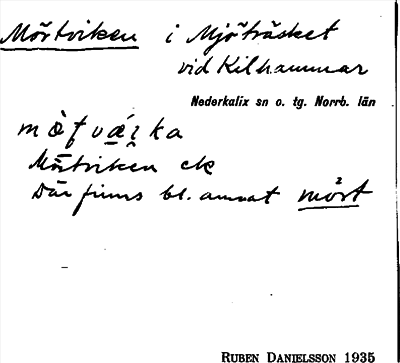 Mörtviken i Mjöträsket
vid Kilhammar
Nederkalix sn o. tg. Norrb. län
Mörtviken ek
Där finns bl. annat mört
RUBEN DANIELSSON 1935